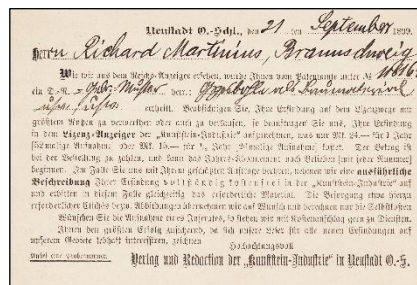 Neustadt O.-Schl., den 21 ten September 1899.
Herrn Richard Martinius, Braunschweig
Wie wir aus dem Reichs-Anzeiger ersehen, wurde Ihnen vom Patentamte unter №
ein D.-R.- Gebr.-Muster betr.:
usw. usw. ertheilt. Beabsichtigen Sie, Ihre Erfindung auf dem Lizenzwege mit
größtem Nutzen zu verwerthen oder auch zu verkaufen, so beauftragen Sie uns, Ihre Erfindung
in dem Lizenz-Anzeiger der „Kunststein-Industrie“ aufzunehmen, was nur Mk. 24.— für 1 Jahr
malige Aufnahme) oder Mk. 15.— für ½ Jahr malige Aufnahme) kostet. Der Betrag ist
bei der Bestellung zu zahlen, und kann das Jahres-Abonnement nach Belieben mit jeder Nummer
beginnen. Im Falle Sie uns mit Ihrem geschätzten Auftrage beehren, nehmen wir eine ausführliche
Beschreibung Ihrer Erfindung vollständig kostenfrei in der „Kunststein-Industrie“ auf
und erbitten in diesem Falle gleichzeitig das erforderliche Material. Die Besorgung etwa hierzu
erforderlicher Clichés bezw. Abbildungen übernehmen wir auf Wunsch und berechnen nur die Selbstkosten.
Wünschen Sie die Aufnahme eines Inserates, so stehen wir mit Kostenanschlag gern zu Diensten.
Ihnen den größten Erfolg zusichernd, da sich unsere Leser für alle neuen Erfindungen auf
unserem Gebiete lebhaft interessiren, zeichnen
Hochachtungsvoll
Verlag und Redaction der „Kunststein-Industrie“ in Neustadt O.-S.